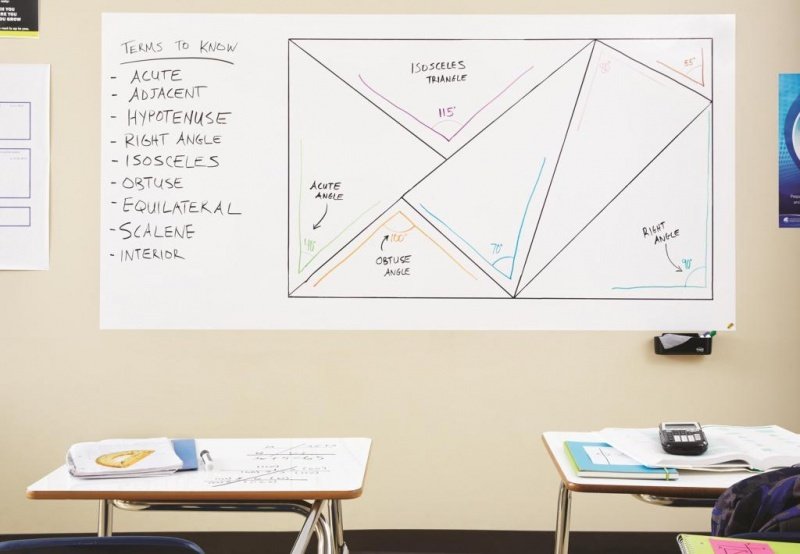 TERMS TO KNOW
- ACUTE
- ADJACENT
- HYPOTENUSE
- RIGHT ANGLE
- ISOSCELES
- OBTUSE
- EQUILATERAL
- SCALENE
- INTERIOR
ISOSCELES
TRIANGLE
115°
55°
ACUTE
ANGLE
40°
100°
OBTUSE
ANGLE
70°
RIGHT
ANGLE
90°